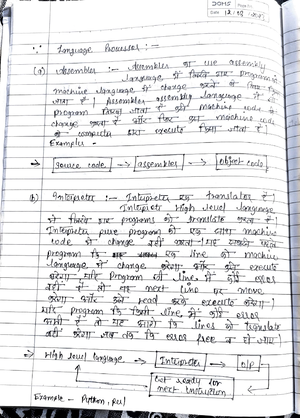 DOMS
Date 12/08/2025
Language Processor : —
(a) Assembler :— Assembler का use assembly
language में लिखे गए program को
machine language में change करने के लिए किया
जाता है। Assembler assembly language में
program लिखा जाता है machine code में
change करता है और फिर machine code
को computer execute किया जाता है।
Example -
→ source code → assembler → object code
(b) Interpreter :— Interpreter एक translator है।
Interpreter High level language
में लिखे गए programs को translate करता है।
Interpreter pure program को एक साथ machine
code में change नहीं करता। यह
program के एक line को machine
language में change करेगा और execute
करेगा। यदि program की line में कोई error
नहीं है तो वह next line पर move
करेगा और उसे read करके execute करेगा।
यदि program के किसी line में कोई error
आती है तो यह आगे के lines को translate
नहीं करेगा जब तक कि error free न हो जाए।
→ High level language → Interpreter → O/P
Get ready for
next instruction
Example - Python, perl